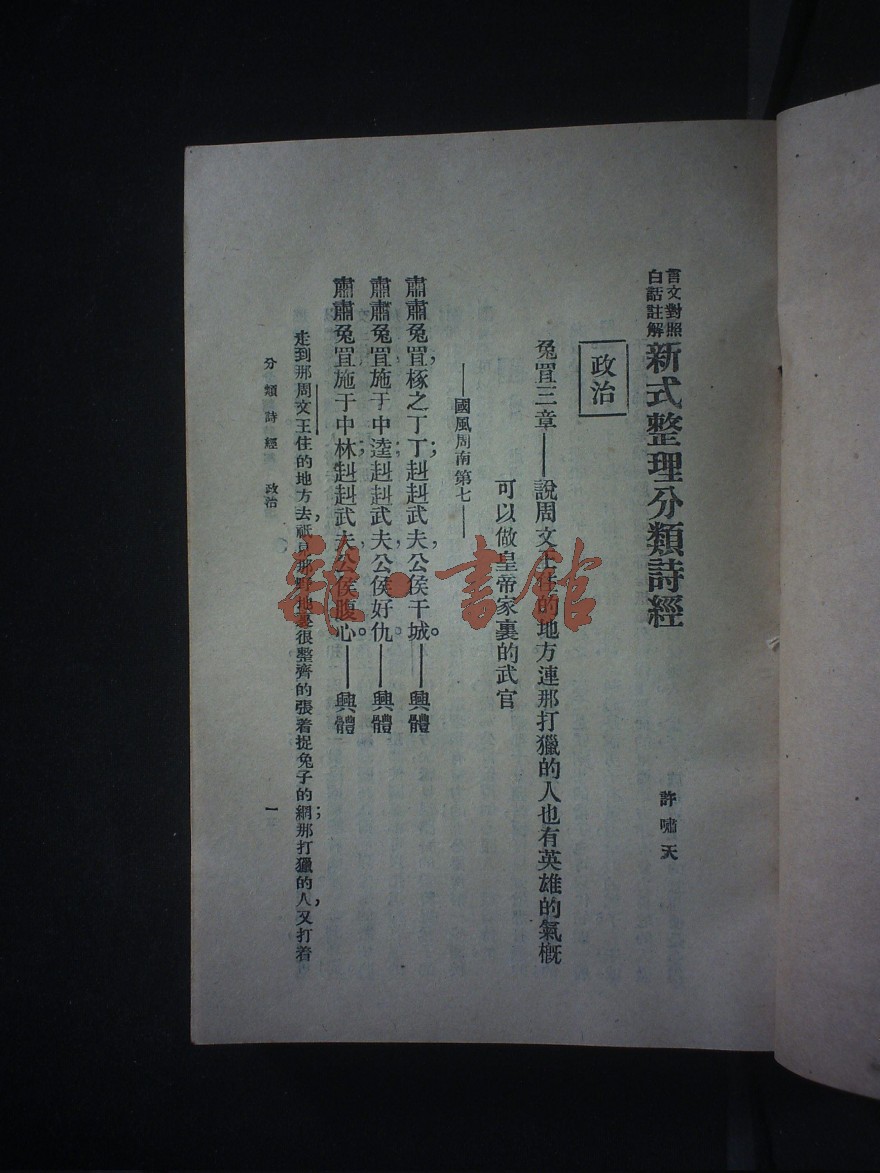 言文對照
白話註解
新式整理分類詩經
許嘯天
政治
兔罝三章——說周文王住的地方連那打獵的人也有英雄的氣概
可以做皇帝家裏的武官
——國風周南第七——
肅肅兔罝，椓之丁丁；赳赳武夫，公侯干城。——興體
肅肅兔罝，施于中逵；赳赳武夫，公侯好仇。——興體
肅肅兔罝，施于中林；赳赳武夫，公侯腹心。——興體
走到那周文王住的地方去，祇見那野地裏很整齊的張着捉兔子的網；那打獵的人，又打着
分類詩經 政治
一
書館